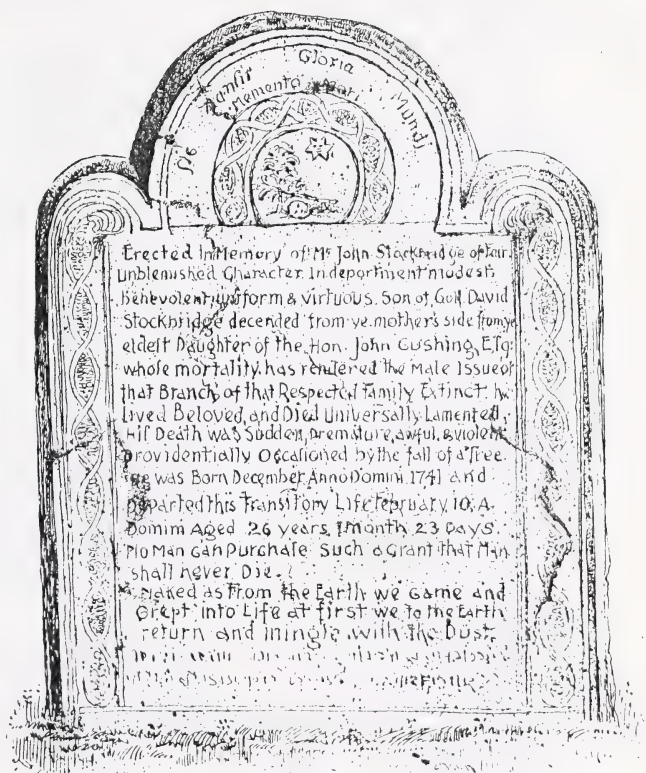 Sic Transit Gloria Mundi
Memento Mori
Erected In Memory of Mr John Stockbridge of fair
unblemished Character. In deportment modest
benevolent, uniform & virtuous. Son of Gen David
Stockbridge decended from ye mother's side from ye
eldest Daughter of the Hon. John Cushing, Esq.
whose mortality has rendered the Male Issue of
that Branch of that Respected Family Extinct he
lived Beloved, and Died Universally Lamented,
His Death was Sudden, premature, awful, & violent
providentially Occasioned by the fall of a Tree
He was Born December Anno Domini 1741 and
Departed this Transitory Life February 10, A.
Domini Aged 26 years 1 month 23 Days.
No Man Can Purchase Such a Grant that Man
shall never Die.
Naked as from the Earth we Came and
Crept into Life at first we to the Earth
return and mingle with the Dust.